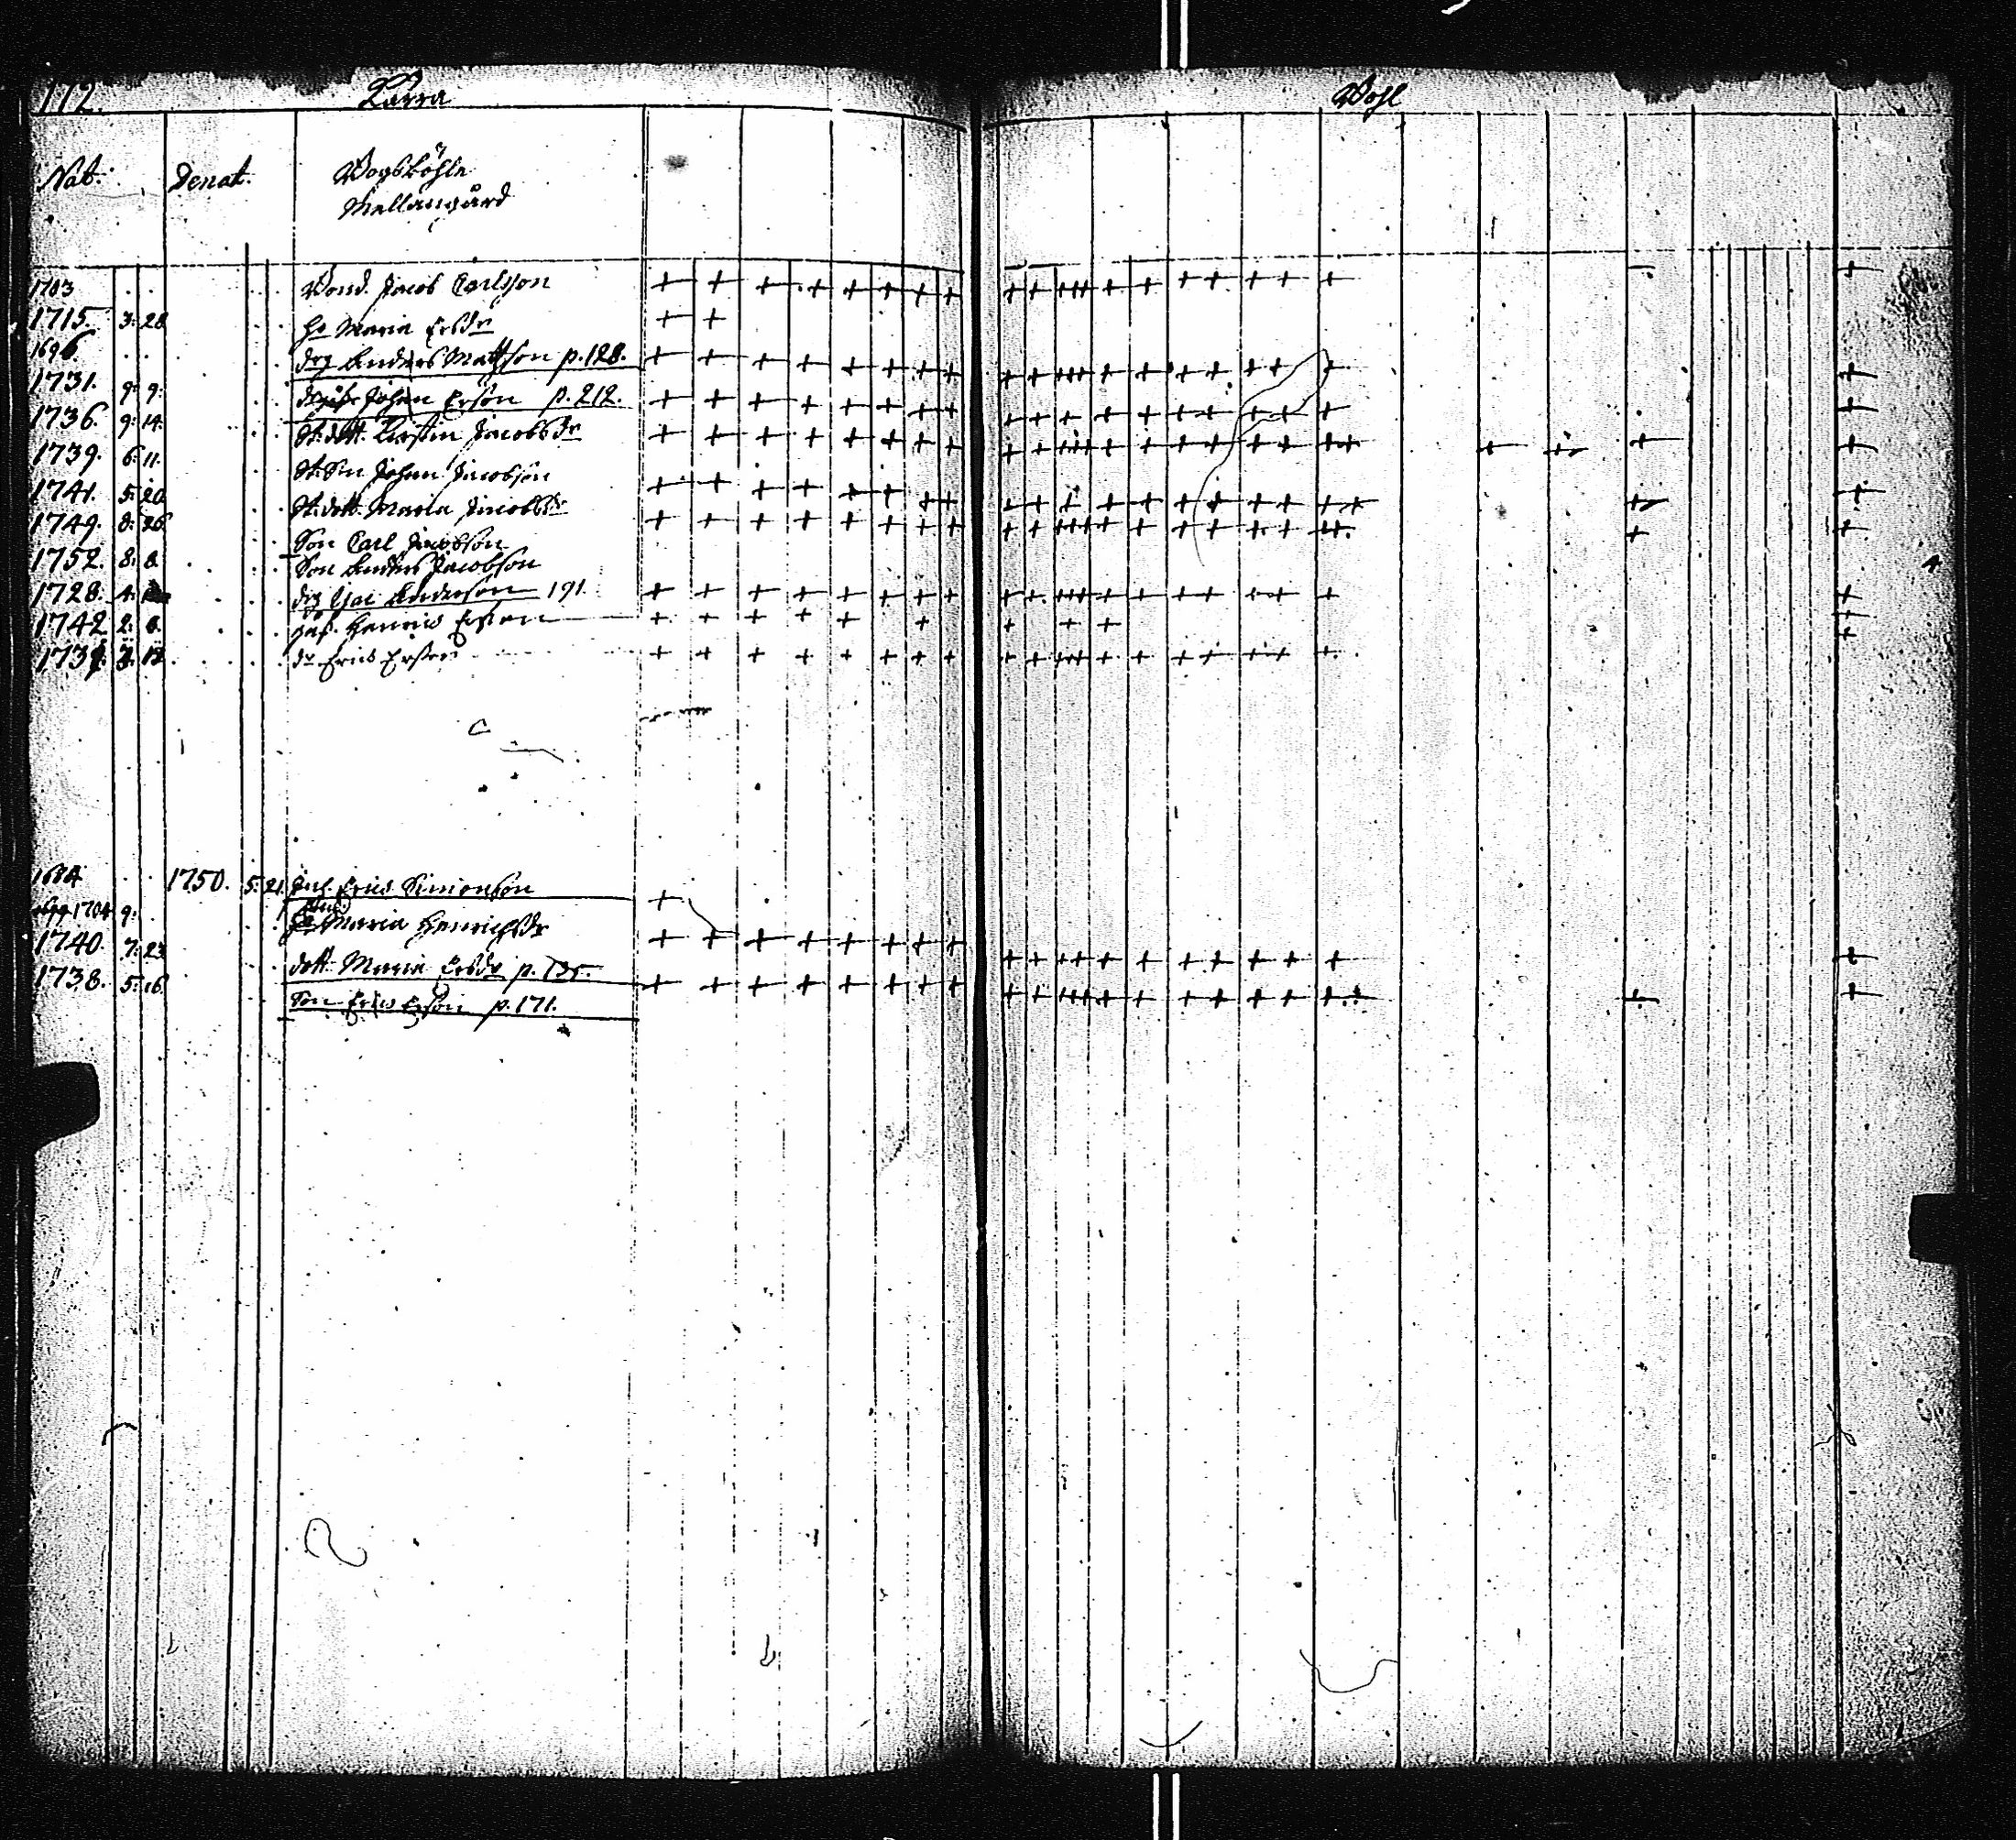 112. Karra Bohl
Nat. Denat. Bogsböhle
Mellangård
1703 Bond. Jacob Carlsson
1715. 3. 28 Ho Maria Ersdr
1696. drg Anders Mattsson p. 128.
1731. 9. 9. Johan Erson p. 212.
1736. 9. 14. St. dott. Kirstin Jacobsdr
1739. 6. 11. St. Son Johan Jacobson
1741. 5. 20 St. dott. Maria Jacobsdr
1749. 8. 26 Son Carl Jacobson
1752. 8. 8. Son Anders Jacobson
1728. 4. drg Anderson 191
1742 2. 8. Henric Erson
173 3. 12 do Eric Erson
4
1684 1750. 5. 21. Inh. Eric Simonson
1704 9. Maria Henrichsdr
1740. 7. 23 dott. Maria Ersdr p. 135.
1738. 5. 16 Son Eric Erson p. 171.